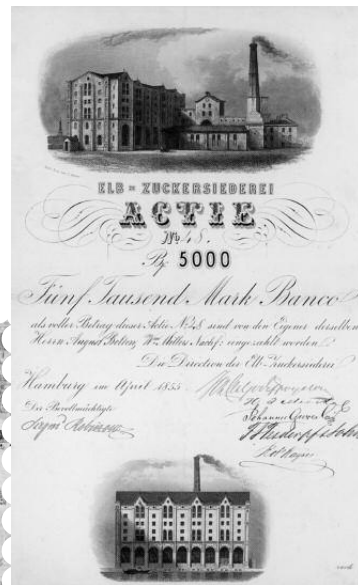 ELB = ZUCKERSIEDEREI
ACTIE
No 48.
5000
Fünf Tausend Mark Banco
als voller Betrag dieser Actie No 48 sind von den Eigner derselben
Herrn August Bolten, Wm Millers Nachf: eingezahlt worden.
Die Direction der Elb-Zuckersiederei
Hamburg im April 1855
Der Bevollmächtigte